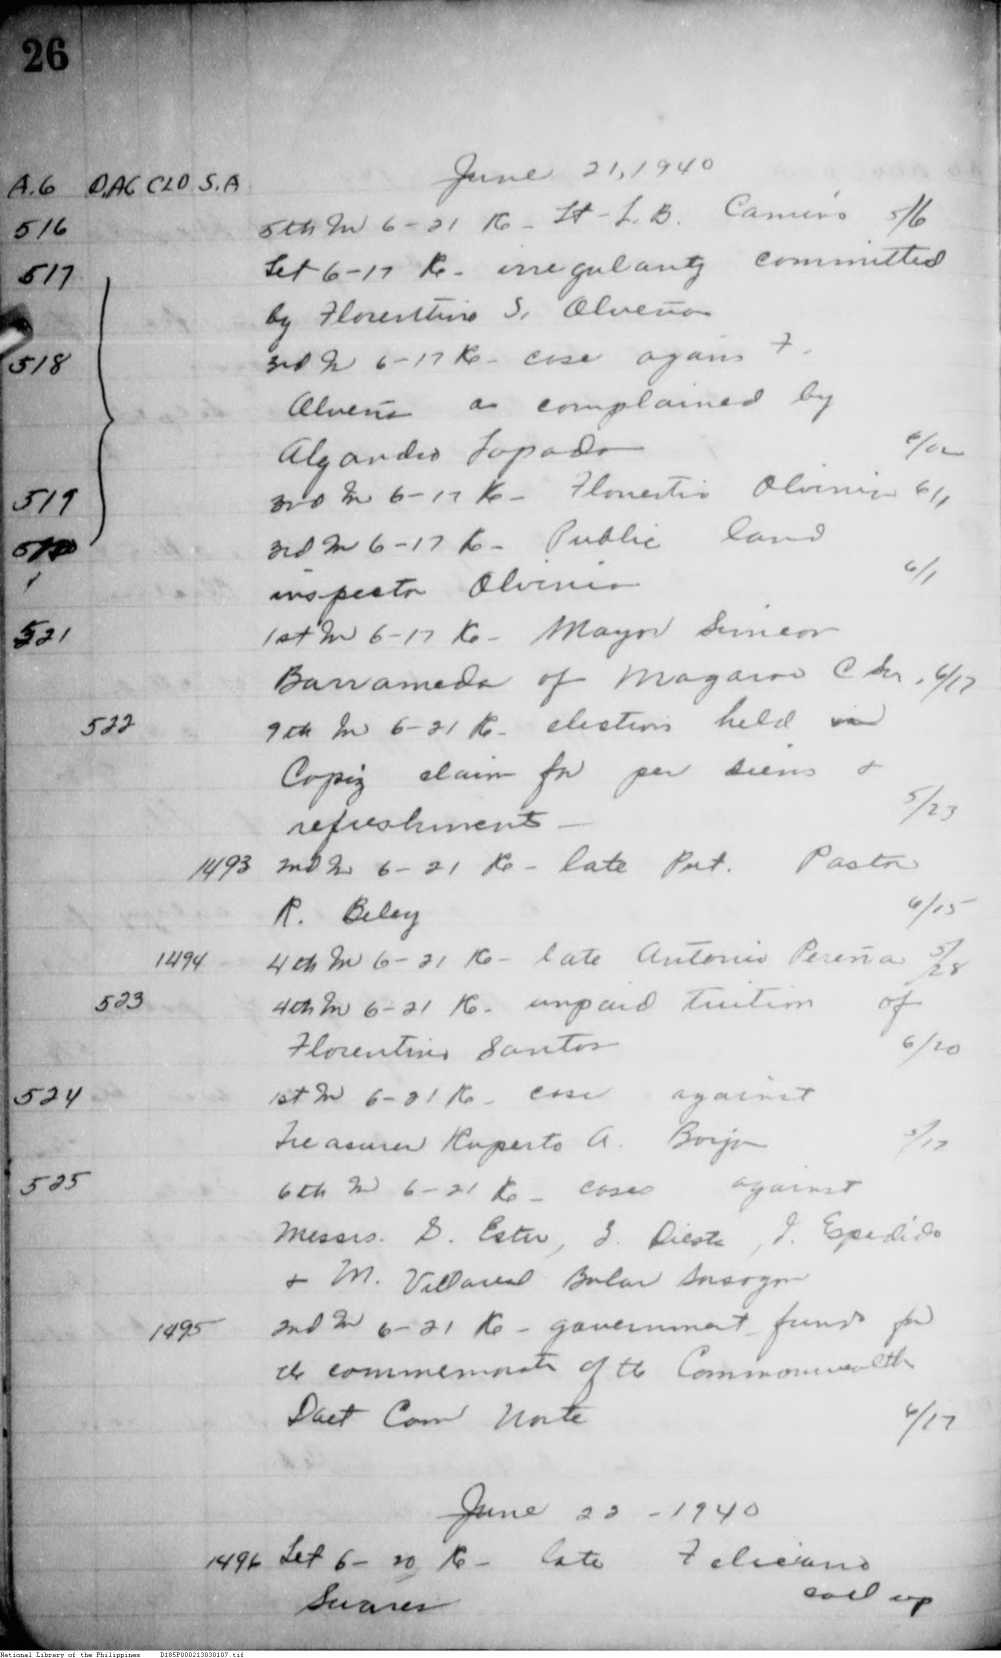 26
June 21, 1940
A.G D.AG CLD S.A
516 5th In 6-21 Re- Lt- L.B. 5/6
517 Let 6-17 Re- irregularity committed
by Florentino S. Olveña
518 3rd In 6-17 Re- case agains F.
Olveña as complained by
Algandro Lopado
519 3rd In 6-17 Re- Florentio Olvinia 6/1
3rd In 6-17 Re- Public land
inspector Olvinia 6/1
521 1st In 6-17 Re- Mayor Simeon
Barrameda of Magarao C Sur. 6/17
522 9th In 6-21 Re- elections held in
Capiz claim for per diems +
refreshments - 5/23
1493 2nd In 6-21 Re- late Pvt. Pastor
R. Beley 6/15
1494 4th In 6-21 Re- late Antonio Pereña 5/28
523 4th In 6-21 Re- unpaid tuition of
Florentino Santos 6/20
524 1st In 6-21 Re- case against
Treasurer Ruperto A. Borja
525 6th In 6-21 Re- cases against
Messrs. S. Ester, J. Diesta, I. Espedido
+ M. Villareal Bulan Sorsogon
1495 2nd In 6-21 Re- government funds for
the commemorate of the Commonwealth
Daet Cam Norte 6/17
June 22 - 1940
1496 Let 6-20 Re- late Feliciano
Suares call up
National Library of the Philippines D185P000213030107.tif